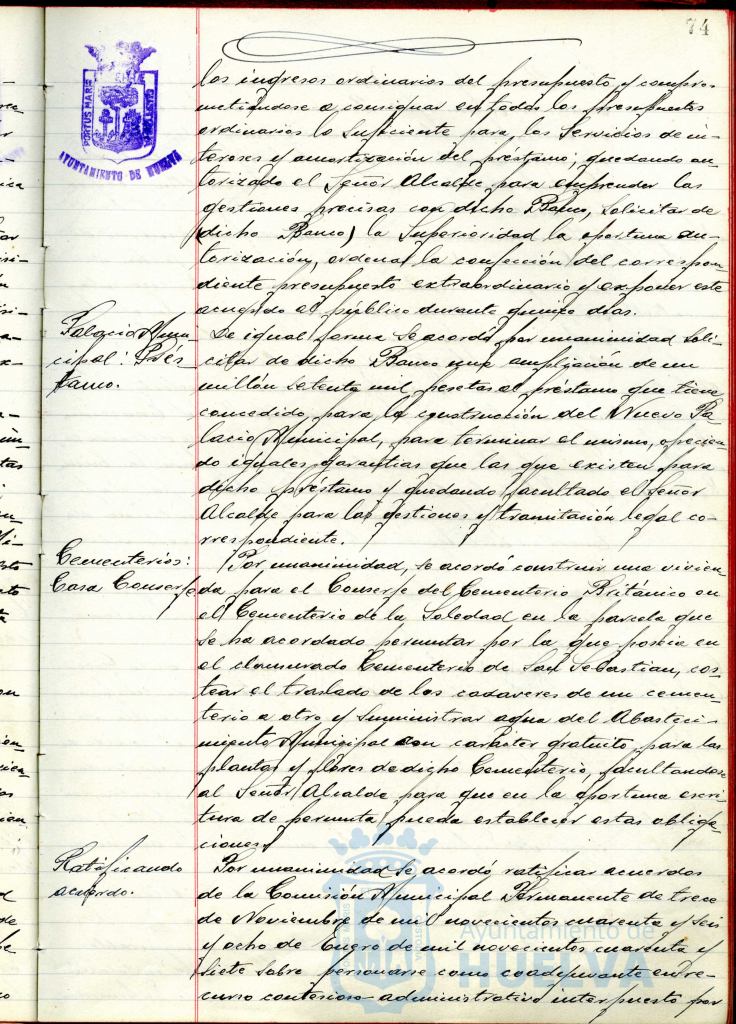 74
PORTUS MARIS ET TERRAE CUSTODIA
AYUNTAMIENTO DE HUELVA
los ingresos ordinarios del presupuesto y compro
metiéndose a consignar en todos los presupuestos
ordinarios lo suficiente para los servicios de in-
tereses y amortización del préstamo; quedando au
torizado el Señor Alcalde para emprender las
gestiones precisas con dicho Banco, solicitar de
(dicho Banco) la Superioridad la oportuna au-
torización, ordenar la confección del correspon
diente presupuesto extraordinario y exponer este
acuerdo al público durante quince días.
Palacio Muni-
cipal: Prés-
tamo.
De igual forma se acordó por unanimidad soli-
citar de dicho Banco una ampliación de un
millón setenta mil pesetas al préstamo que tiene
concedido para la construcción del Nuevo Pa
lacio Municipal, para terminar el mismo, ofrecien
do iguales garantías que las que existen para
dicho préstamo y quedando facultado el Señor
Alcalde para las gestiones y tramitación legal co-
rrespondiente.
Cementerios:
Casa Conserje
Por unanimidad, se acordó construir una vivien
da para el Conserje del Cementerio Británico en
el Cementerio de la Soledad en la parcela que
se ha acordado permutar por la que poseía en
el clausurado Cementerio de San Sebastian, cos
tear el traslado de los cadaveres de un cemen-
terio a otro y suministrar agua del Abasteci-
miento Municipal con carácter gratuito, para las
plantas y flores de dicho Cementerio, facultandose
al Señor Alcalde para que en la oportuna escri
tura de permuta pueda establecer estas obliga
ciones.
Ratificando
acuerdo.
Por unanimidad se acordó ratificar acuerdos
de la Comisión Municipal Permanente de trece
de Noviembre de mil novecientos cuarenta y seis
y ocho de Enero de mil novecientos cuarenta y
siete sobre personarse como coadyuvante en re-
curso contencioso-administrativo interpuesto por
Ayuntamiento de
HUELVA